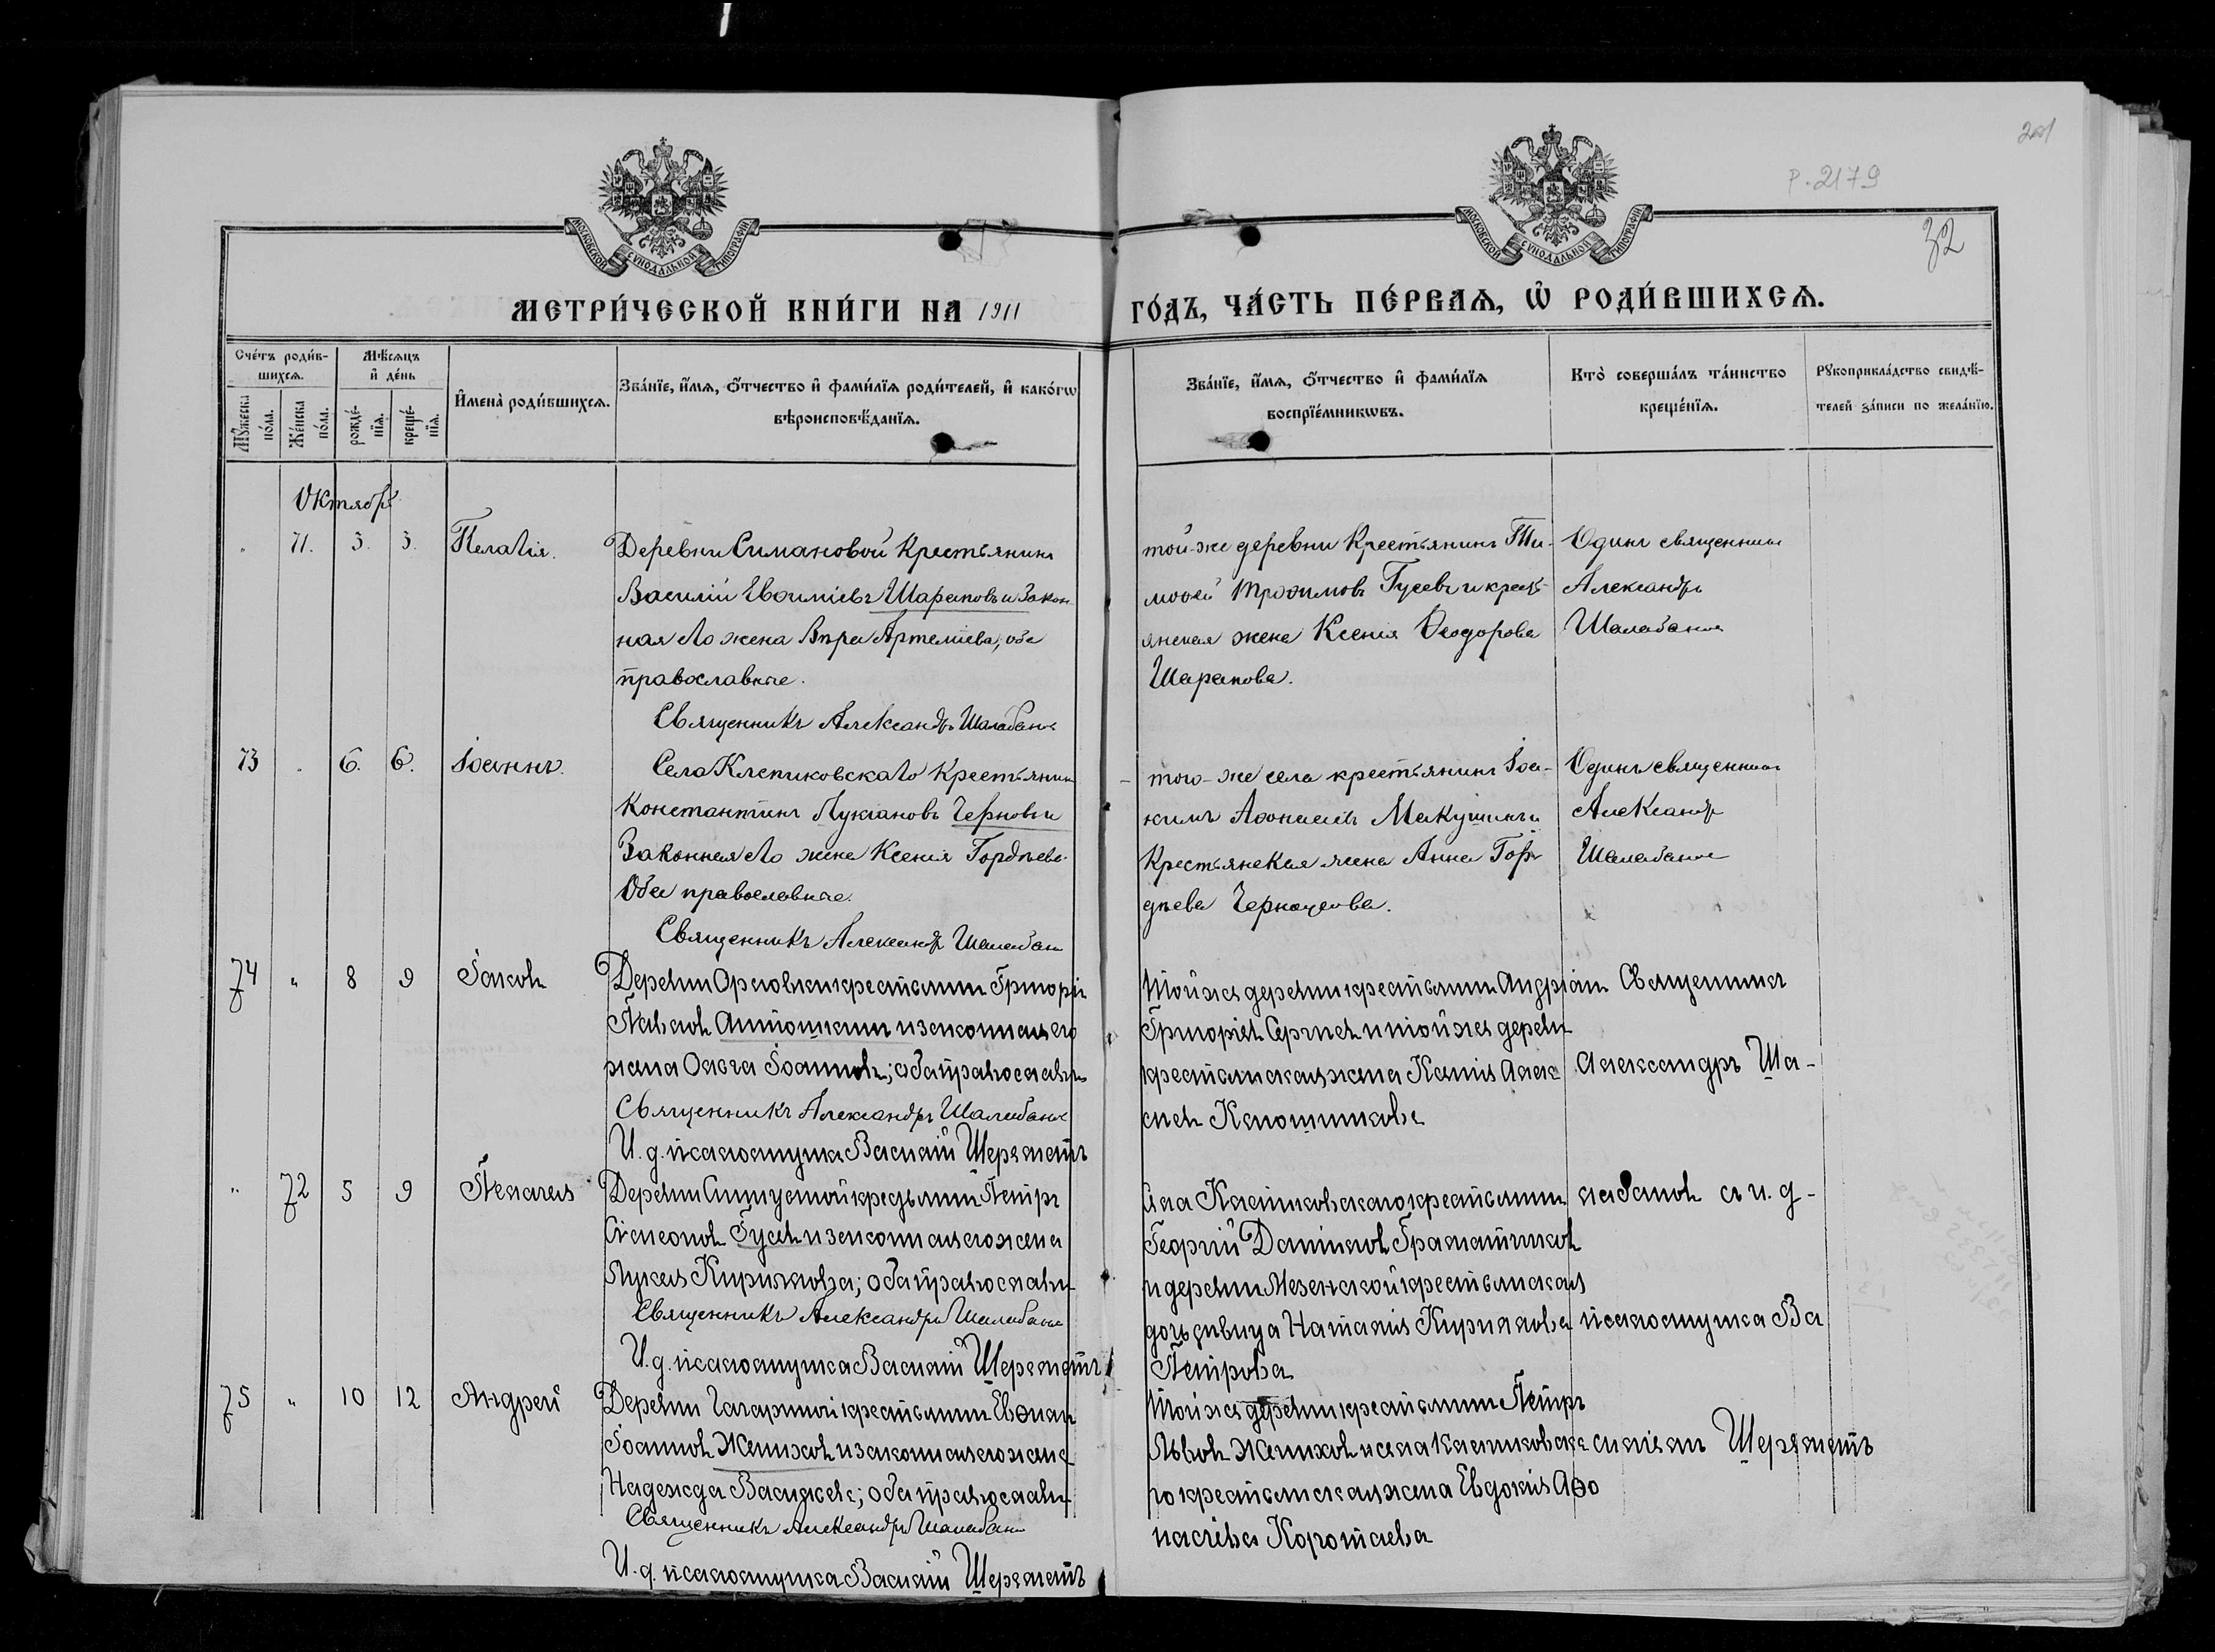 201
Р. 2179
32
МОСКОВСКОЙ СУНОДАЛЬНОЙ ТИПОГРАФІИ
МОСКОВСКОЙ СУНОДАЛЬНОЙ ТИПОГРАФІИ
МЕТРИ́ЧЕСКОЙ КНИ́ГИ НА 1911
ГО́ДЪ, ЧА́СТЬ ПЕ́РВАѦ, Ѡ҆ РОДИ́ВШИХСѦ.
Сче́тъ роди́в-
шихсѧ.
Мѣ́сѧцъ
и҆ де́нь
Мꙋ́жеска
по́ла.
Же́нска
по́ла.
рожде́-
нїѧ.
креще́-
нїѧ.
И҆мена̀ роди́вшихсѧ.
Зва́нїе, и҆́мѧ, ѻ҆́тчество и҆ фами́лїѧ роди́телей, и҆ како́гѡ
вѣроисповѣ́данїѧ.
Зва́нїе, и҆́мѧ, ѻ҆́тчество и҆ фами́лїѧ
воспрїе́мникѡвъ.
Кто̀ соверша́лъ та́инство
креще́нїѧ.
Рꙋкоприкла́дство свидѣ́-
телей за́писи по жела́нїю.
Октябрь
" 71. 3. 3. Пелагія.
Деревни Симановой крестьянинъ
Василій Евѳиміевъ Шараповъ и закон
ная его жена Вѣра Артеміева, оба
православные.
Священникъ Александръ Шалабановъ
той-же деревни крестьянинъ Ти-
моѳей Трофимовъ Гусевъ и кресть-
янская жена Ксенія Ѳеодорова
Шарапова.
Одинъ священникъ
Александръ
Шалабановъ
73 " 6. 6. Іоаннъ.
Села Клепиковскаго крестьянинъ
Константинъ Лукіановъ Черновъ и
законная его жена Ксенія Гордѣева
Оба православные.
Священникъ Александръ Шалабанов
того-же села крестьянинъ Іоа-
кимъ Аѳонасіевъ Макушинъ и
крестьянская жена Анна Гор-
дѣева
Одинъ священникъ
Александръ
Шалабановъ
74 " 8 9 Іаковъ
Деревни Орловки крестьянинъ Григорій
Павловъ Антошкинъ и законная его
жена Ольга Іоаннова; оба православны
Священникъ Александръ Шалабановъ
И. д. псаломщика Василій Шереметъ
Той же деревни крестьянинъ Андріанъ
Григоріевъ Сергѣевъ и той же деревни
крестьянская жена Алек
сѣева
Священникъ
Александръ Ша-
" 72 5 9 Пелагея
Деревни крестьянинъ Петръ
Симеоновъ Гусевъ и законная его жена
Лукія Кириллова; оба православны
Священникъ Александръ Шалабановъ
И. д. псаломщика Василій Шереметъ
Села Клепиковскаго крестьянинъ
Георгій Даніиловъ Граматчиковъ
и деревни Мезенской крестьянская
дочь дѣвица Наталія Кириллова
Петрова
лабановъ съ и. д-
псаломщика Ва
75 " 10 12 Андрей
Деревни крестьянинъ
Іоанновъ Жениховъ и законная его жена
Надежда Василиева; оба православны
Священникъ Александръ Шалабанов
И. д. псаломщика Василій Шереметъ
Той же деревни крестьянинъ Петръ
Львовъ Жениховъ и села Клепиковска
го крестьянская жена Евдокія Аѳо
насіева Коротаева
силіемъ Шереметъ